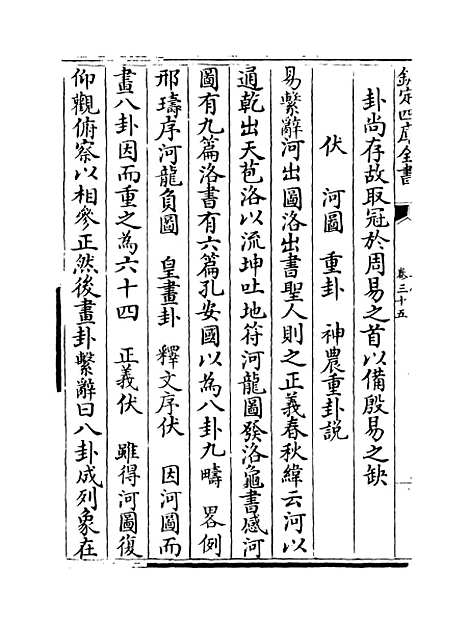 欽定四庫全書
卷三十五
卦尚存故取冠於周易之首以備殷易之缺
伏　河圖　重卦　神農重卦説
易繫辭河出圖洛出書聖人則之正義春秋緯云河以
通乾出天苞洛以流坤吐地符河龍圖發洛龜書感河
圖有九篇洛書有六篇孔安國以為八卦九疇　畧例
邢璹序河龍負圖　皇畫卦　釋文序伏　因河圖而
畫八卦因而重之為六十四　正義伏　雖得河圖復
仰觀俯察以相參正然後畫卦繫辭曰八卦成列象在